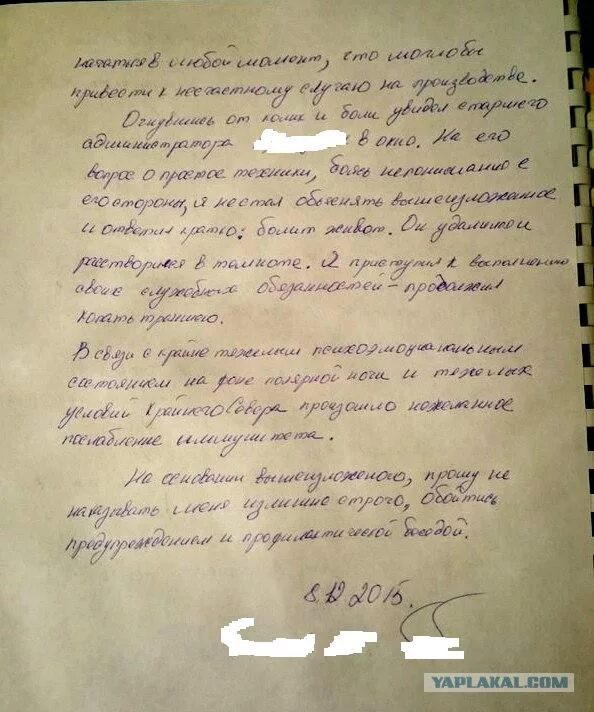 начаться в любой момент, что могло бы
привести к несчастному случаю на производстве.
Очнувшись от колик и боли увидел старшего
администратора в окно. На его
вопрос о простое техники, боясь непонимания с
его стороны, я не стал объяснять вышеизложенное
и ответил кратко: болит живот. Он удалился и
расстворился в темноте. Я приступил к выполнению
своих служебных обязанностей - продолжил
копать траншею.
В связи с крайне тяжелым психоэмоциональным
состоянием на фоне полярной ночи и тяжелых
условий Крайнего Севера произошло нежеланное
послабление иммунитета.
На основании вышеизложеного, прошу не
наказывать меня излишне строго, обойтись
предупреждением и профилактической беседой.
8.12.2015.
YAPLAKAL.COM